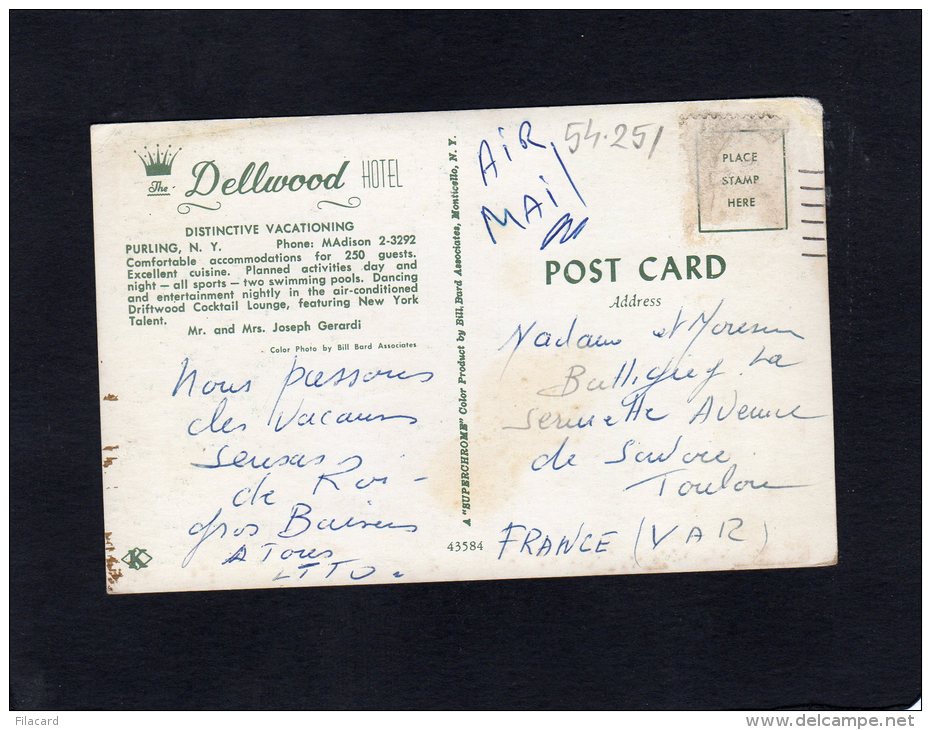 The Dellwood HOTEL
DISTINCTIVE VACATIONING
PURLING, N. Y. Phone: MAdison 2-3292
Comfortable accommodations for 250 guests.
Excellent cuisine. Planned activities day and
night — all sports — two swimming pools. Dancing
and entertainment nightly in the air-conditioned
Driftwood Cocktail Lounge, featuring New York
Talent.
Mr. and Mrs. Joseph Gerardi
Color Photo by Bill Bard Associates
Nous passons
des vacances
de Roi -
gros Baisers
A Tous
A "SUPERCHROME" Color Product by Bill Bard Associates, Monticello, N. Y.
43584
K
AIR
MAIL
54.251
PLACE
STAMP
HERE
POST CARD
Address
Madame et
La
Avenue
de
Toulon
FRANCE (VAR)
Filacard
www.delcampe.net